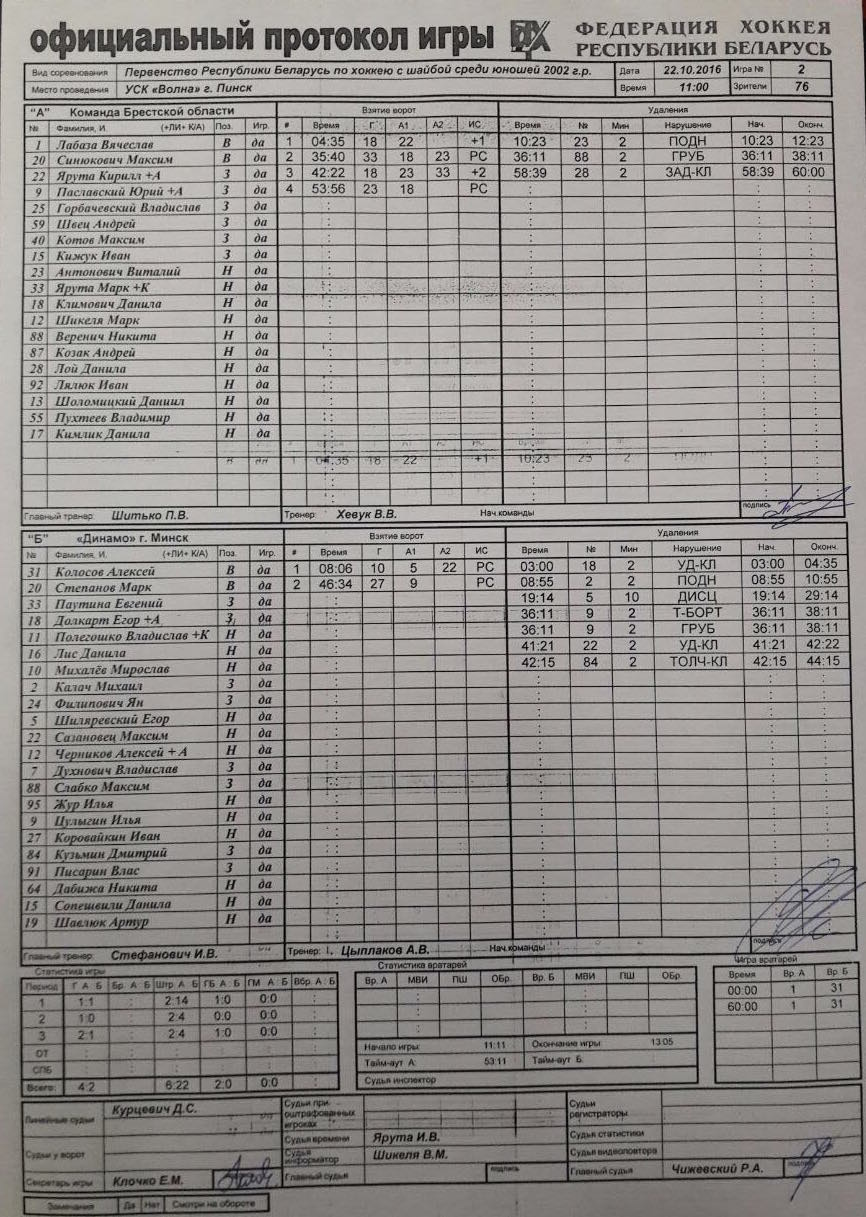 официальный протокол игры ФЕДЕРАЦИЯ ХОККЕЯ
РЕСПУБЛИКИ БЕЛАРУСЬ
Вид соревнования Первенство Республики Беларусь по хоккею с шайбой среди юношей 2002 г.р. Дата 22.10.2016 Игра № 2
Место проведения УСК «Волна» г. Пинск Время 11:00 Зрители 76
"А" Команда Брестской области Взятие ворот Удаления
№ Фамилия, И. (+ЛИ+ К/А) Поз. Игр. # Время Г А1 А2 ИС Время № Мин Нарушение Нач. Оконч.
1 Лабаза Вячеслав В да 1 04:35 18 22 +1 10:23 23 2 ПОДН 10:23 12:23
20 Синюкович Максим В да 2 35:40 33 18 23 РС 36:11 88 2 ГРУБ 36:11 38:11
22 Ярута Кирилл +А З да 3 42:22 18 23 33 +2 58:39 28 2 ЗАД-КЛ 58:39 60:00
9 Паславский Юрий +А З да 4 53:56 23 18 РС
25 Горбачевский Владислав З да
59 Швец Андрей З да
40 Котов Максим З да
15 Кижук Иван З да
23 Антонович Виталий Н да
33 Ярута Марк +К Н да
18 Климович Данила Н да
12 Шикеля Марк Н да
88 Веренич Никита Н да
87 Козак Андрей Н да
28 Лой Данила Н да
92 Лялюк Иван Н да
13 Шоломицкий Даниил Н да
55 Пухтеев Владимир Н да
17 Кимлик Данила Н да
1 04:35 18 22 +1 10:23 23 2
Главный тренер: Шитько П.В. Тренер: Хевук В.В. Нач.команды подпись
"Б" «Динамо» г. Минск Взятие ворот Удаления
№ Фамилия, И. (+ЛИ+ К/А) Поз. Игр. # Время Г А1 А2 ИС Время № Мин Нарушение Нач. Оконч.
31 Колосов Алексей В да 1 08:06 10 5 22 РС 03:00 18 2 УД-КЛ 03:00 04:35
20 Степанов Марк В да 2 46:34 27 9 РС 08:55 2 2 ПОДН 08:55 10:55
33 Паутина Евгений З да 19:14 5 10 ДИСЦ 19:14 29:14
18 Долкарт Егор +А З да 36:11 9 2 Т-БОРТ 36:11 38:11
11 Полегошко Владислав +К Н да 36:11 9 2 ГРУБ 36:11 38:11
16 Лис Данила Н да 41:21 22 2 УД-КЛ 41:21 42:22
10 Михалёв Мирослав Н да 42:15 84 2 ТОЛЧ-КЛ 42:15 44:15
2 Калач Михаил З да
24 Филипович Ян З да
5 Шиляревский Егор Н да
22 Сазановец Максим Н да
12 Черников Алексей + А Н да
7 Духнович Владислав З да
88 Слабко Максим З да
95 Жур Илья Н да
9 Цулыгин Илья Н да
27 Коровайкин Иван Н да
84 Кузьмин Дмитрий З да
91 Писарин Влас З да
64 Дабижа Никита Н да
15 Сопешвили Данила Н да
19 Шавлюк Артур Н да
Главный тренер: Стефанович И.В. Тренер: Цыплаков А.В. Нач.команды подпись
Статистика игры Статистика вратарей Игра вратарей
Период Г А Б Бр. А Б Штр А Б ГБ А Б ГМ А Б Вбр. А Б Вр. А МВИ ПШ ОБр. Вр. Б МВИ ПШ ОБр. Время Вр. А Вр. Б
1 1:1 2:14 1:0 0:0 00:00 1 31
2 1:0 2:4 0:0 0:0 60:00 1 31
3 2:1 2:4 1:0 0:0
ОТ Начало игры: 11:11 Окончание игры 13:05
СПБ Тайм-аут А: 53:11 Тайм-аут Б:
Всего: 4:2 6:22 2:0 0:0 Судья инспектор
Линейные судьи Курцевич Д.С. Судьи при оштрафованных игроках Судьи регистраторы
Судьи у ворот Судья времени Ярута И.В. Судья статистики
Судья информатор Шикеля В.М. Судья видеоповтора
Секретарь игры Клочко Е.М. Главный судья подпись Главный судья Чижевский Р.А. подпись
Замечания Да Нет Смотри на обороте